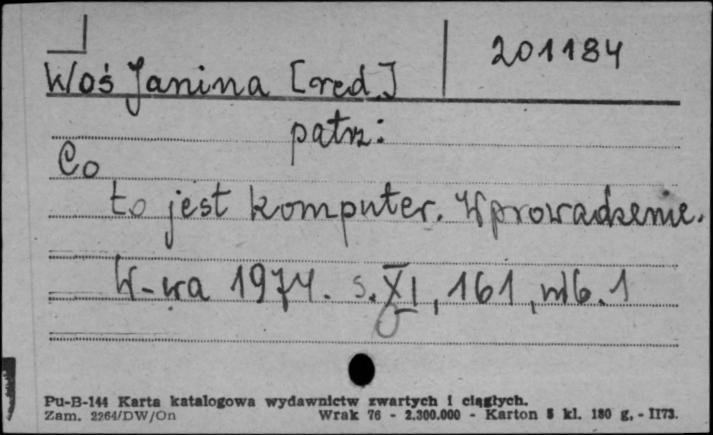 201184
Woś Janina [red.]
patrz:
Co
to jest komputer. Wprowadzenie.
W-wa 1974. s. XI, 161, nlb. 1
Pu-B-144 Karta katalogowa wydawnictw zwartych i ciągłych.
Zam. 2264/DW/On Wrak 76 - 2.300.000 - Karton 5 kl. 180 g. - II73.